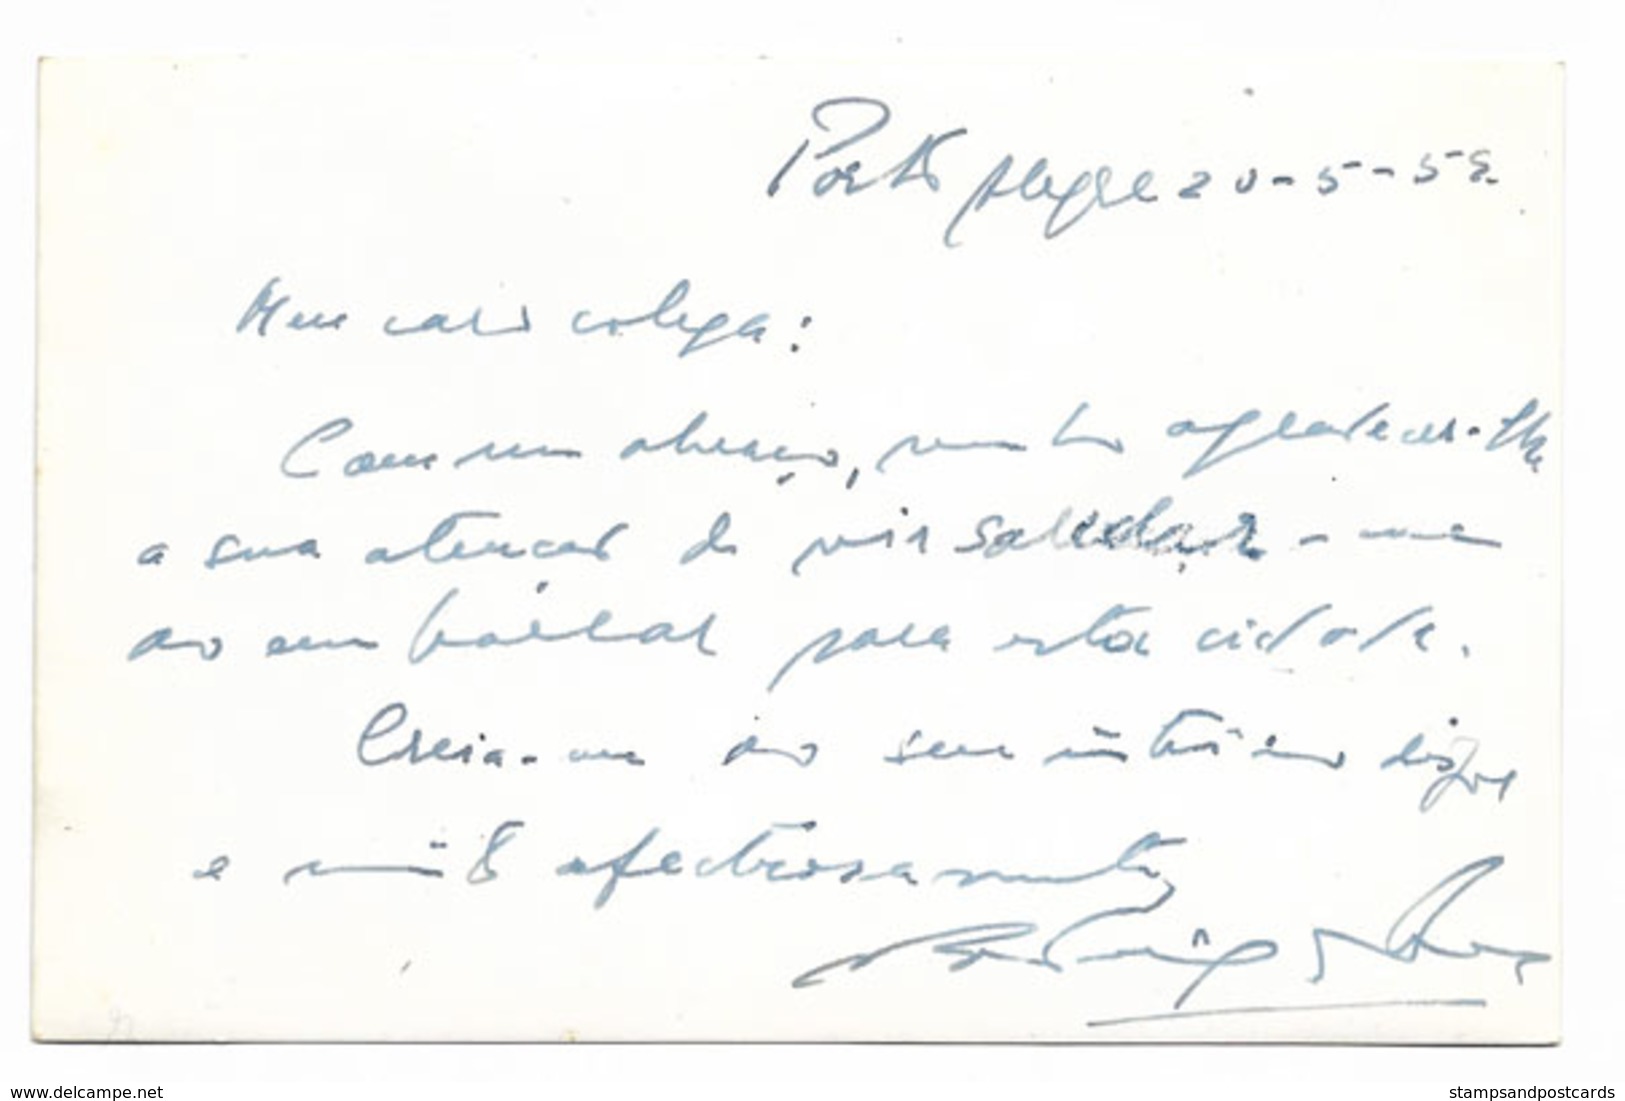 Porto Alegre 20-5-58.
Meu caro colega:
Com um abraço, venho agradecer-lhe
a sua atenção de vir saudar-me
ao embarcar para esta cidade.
Creia-me ao seu inteiro dispor
e mui afectuosamente
delcampe.net
stampsandpostcards